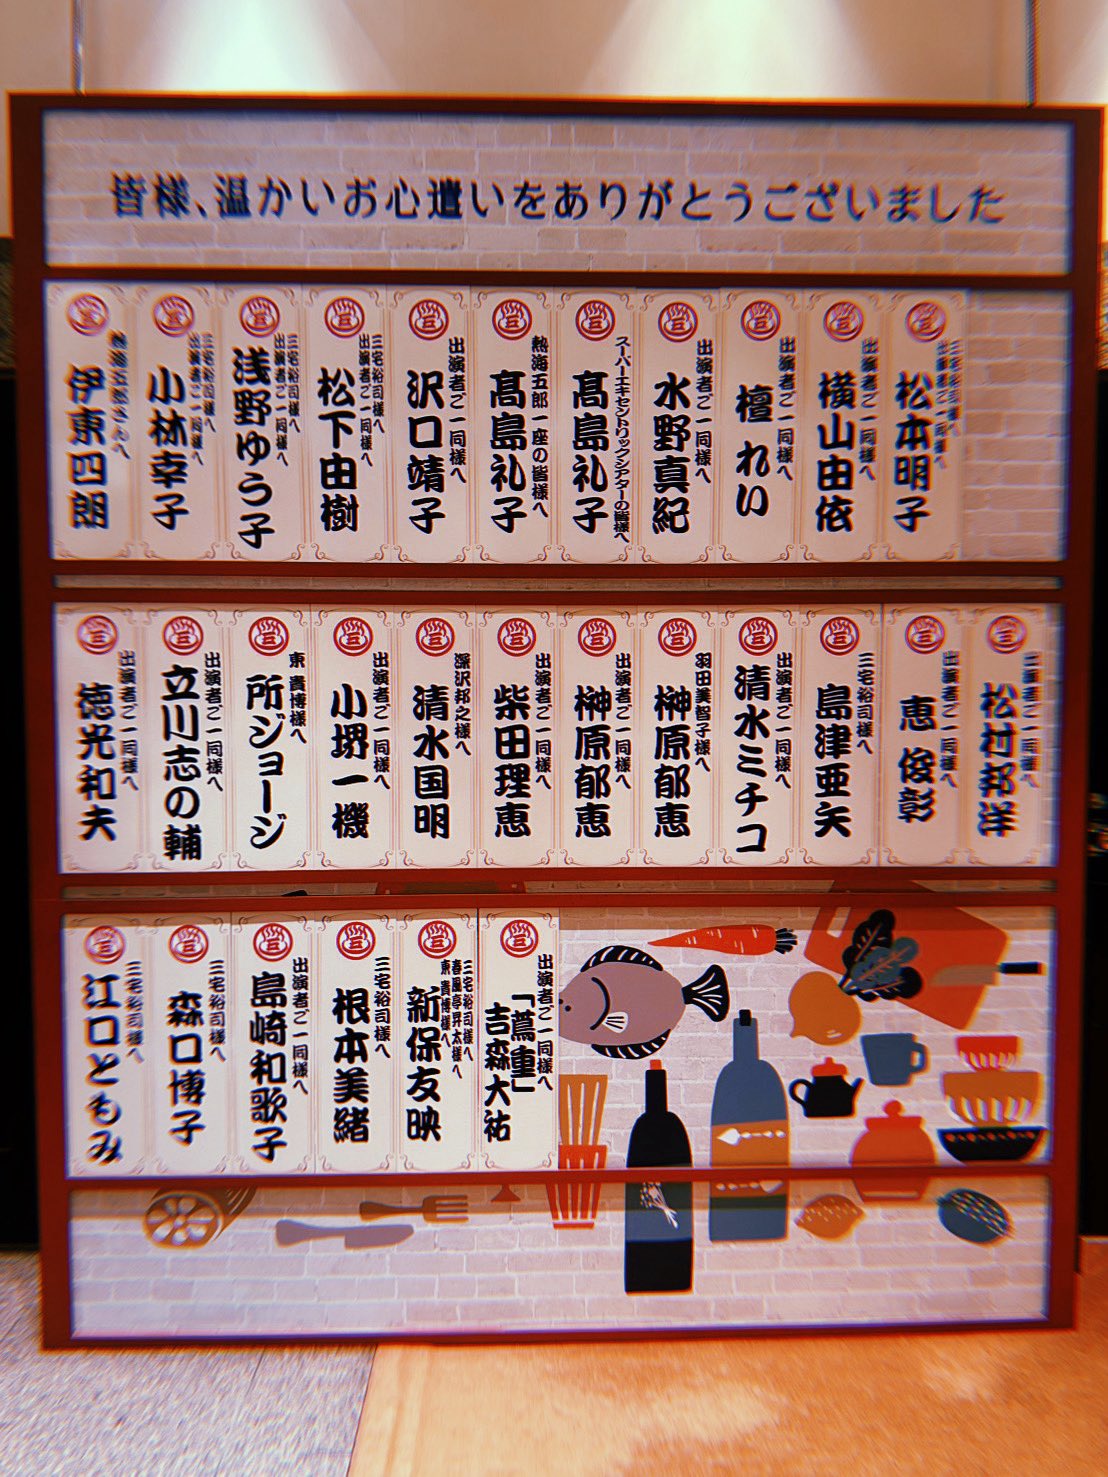 皆様、温かいお心遣いをありがとうございました
伊東四朗
三宅裕司様へ
出演者ご一同様へ
小林幸子
三宅裕司様へ
出演者ご一同様へ
浅野ゆう子
三宅裕司様へ
出演者ご一同様へ
松下由樹
出演者ご一同様へ
沢口靖子
熱海五郎一座の皆様へ
髙島礼子
スーパーエキセントリックシアターの皆様へ
髙島礼子
出演者ご一同様へ
水野真紀
出演者ご一同様へ
檀 れい
出演者ご一同様へ
横山由依
三宅裕司様へ
出演者ご一同様へ
松本明子
出演者ご一同様へ
徳光和夫
出演者ご一同様へ
立川志の輔
東 貴博様へ
所ジョージ
出演者ご一同様へ
小堺一機
深沢邦之様へ
清水国明
出演者ご一同様へ
柴田理恵
出演者ご一同様へ
榊原郁恵
羽田美智子様へ
榊原郁恵
出演者ご一同様へ
清水ミチコ
三宅裕司様へ
島津亜矢
出演者ご一同様へ
恵 俊彰
出演者ご一同様へ
松村邦洋
三宅裕司様へ
江口ともみ
三宅裕司様へ
森口博子
出演者ご一同様へ
島崎和歌子
三宅裕司様へ
根本美緒
三宅裕司様へ
春風亭昇太様へ
東 貴博様へ
新保友映
出演者ご一同様へ
「蔦重」
吉森大祐